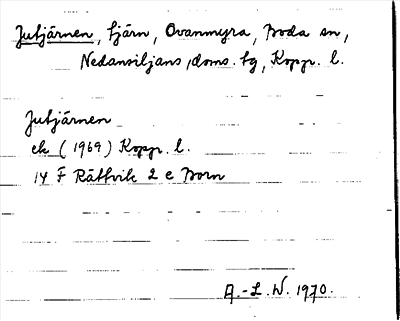 Jutjärnen, tjärn, Ovanmyra, Boda sn,
Nedansiljans doms. tg, Kopp. l.
Jutjärnen
ek (1969) Kopp. l.
14 F Rättvik 2 e Born
A.-L. W. 1970.